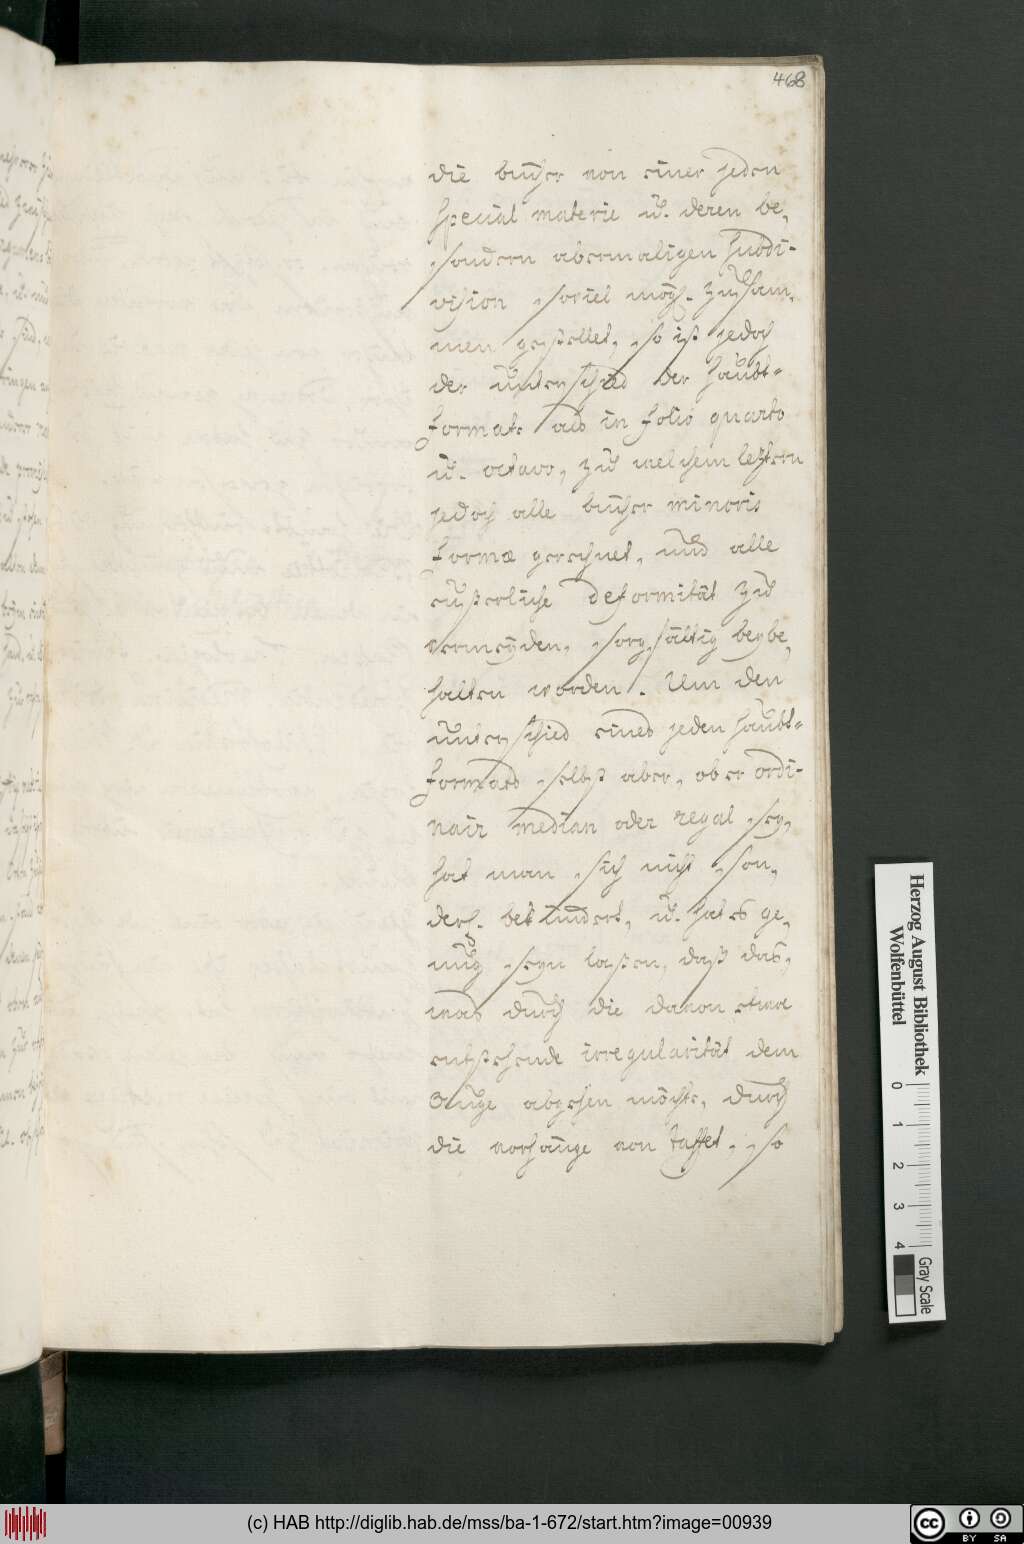 468
die bücher von einer jeden
special materie u. deren be,
sondern abermaligen subdi-
vision soviel mögl. zusam,
men gestellet, so ist jedoch
der unterschied der haubt-
format. als in folio quarto
u. octavo, zu welchem letztern
jedoch alle bücher minoris
formæ gerechnet, und alle
eüßerliche deformität zu
vermeyden, sorgfältig beybe,
halten worden. Um den
unterschied eines jeden haubt-
formats selbst aber, ob er ordi-
nair median oder regal sey,
hat man sich nicht son,
derl. bekümdert, u. hat es ge,
nug seyn laßen, daß das,
was durch die davon etwa
entstehende irregularität dem
Auge abgehen möchte, durch
die vorhänge von taffet, so
Herzog August Bibliothek
Wolfenbüttel
0 1 2 3 4
Gray Scale
(c) HAB http://diglib.hab.de/mss/ba-1-672/start.htm?image=00939
cc BY SA